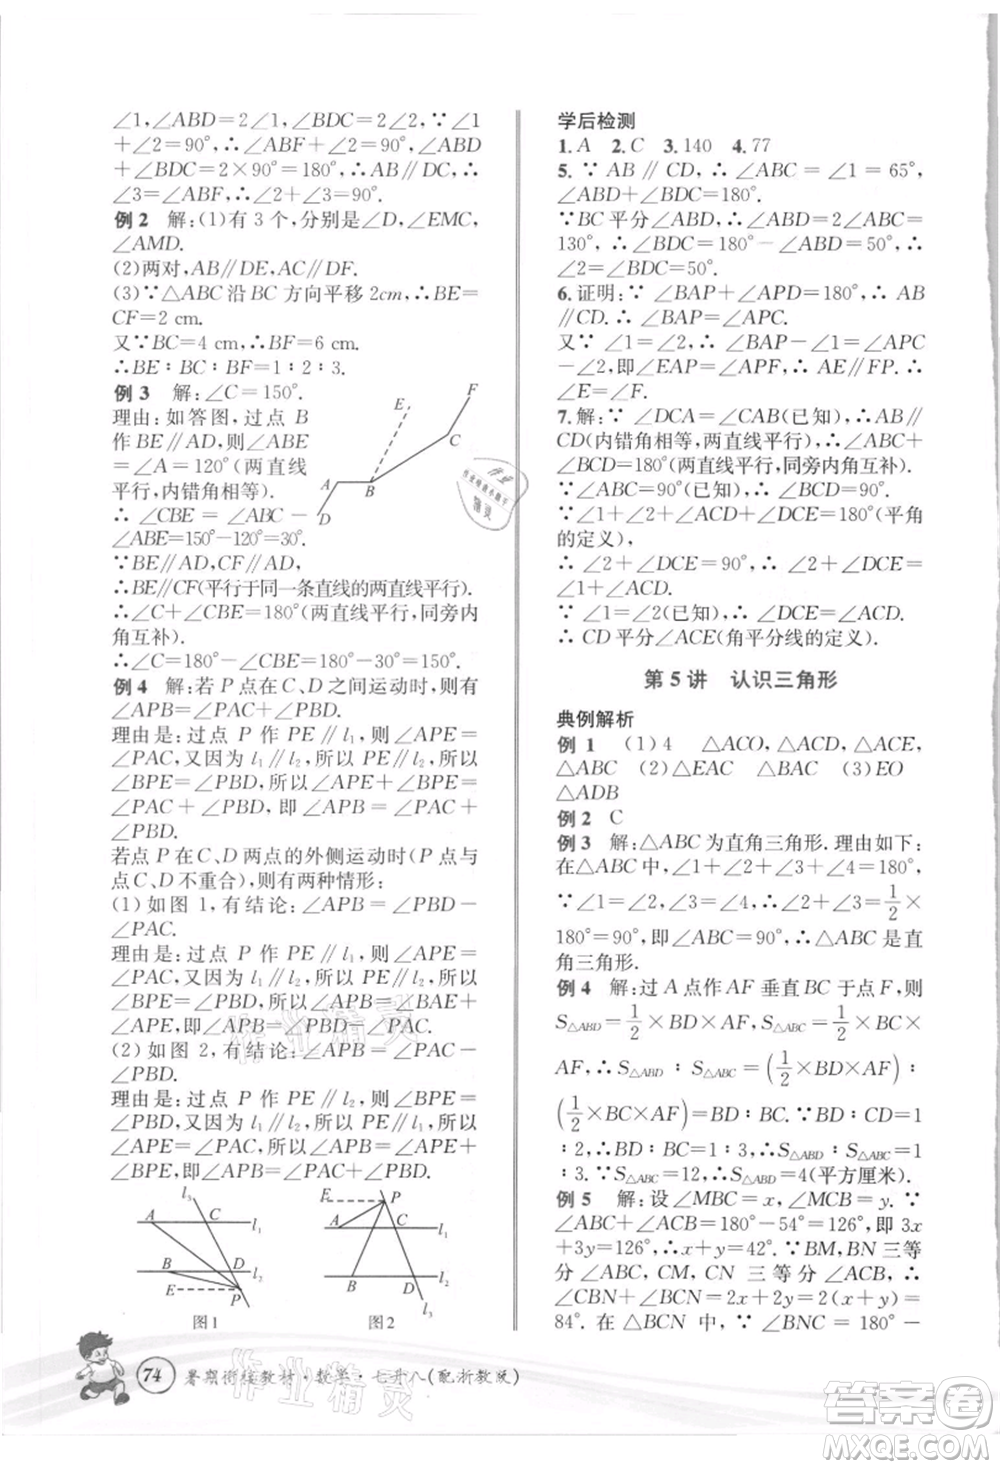 ∠1,∠ABD=2∠1,∠BDC=2∠2,∵∠1
+∠2=90°,∴∠ABF+∠2=90°,∠ABD+
∠BDC=2×90°=180°,∴AB∥CD,∴
∠3=∠ABF,∴∠2+∠3=90°.
例2 解:(1)有3个,分别是∠D,∠EMC,
∠AMD.
(2)两对,AB∥DE,AC∥DF.
(3)∵△ABC沿BC方向平移2cm,∴BE=
CF=2 cm.
又∵BC=4cm,∴BF=6 cm.
∴BE∶BC∶BF=1∶2∶3.
例3 解:∠C=150°.
理由:如答图,过点B
作BE∥AD,则∠ABE
=∠A=120°(两直线
平行,内错角相等).
∴∠CBE=∠ABC-
∠ABE=150°-120°=30°.
∵BE∥AD,CF∥AD,
∴BE∥CF(平行于同一条直线的两直线平行).
∴∠C+∠CBE=180°(两直线平行,同旁内
角互补).
∴∠C=180°-∠CBE=180°-30°=150°.
E
F
C
A
B
D
例4 解:若P点在C、D之间运动时,则有
∠APB=∠PAC+∠PBD.
理由是:过点P作PE∥l₁,则∠APE=
∠PAC,又因为l₁∥l₂,所以PE∥l₂,所以
∠BPE=∠PBD,所以∠APE+∠BPE=
∠PAC+∠PBD,即∠APB=∠PAC+
∠PBD.
若点P在C、D两点的外侧运动时(P点与
点C、D不重合),则有两种情形:
(1)如图1,有结论:∠APB=∠PBD-
∠PAC.
理由是:过点P作PE∥l₁,则∠APE=
∠PAC,又因为l₁∥l₂,所以PE∥l₂,所以
∠BPE=∠PBD,所以∠APB=∠BAE+
∠APE,即∠APB=∠PBD-∠PAC.
(2)如图2,有结论:∠APB=∠PAC-
∠PBD.
理由是:过点P作PE∥l₂,则∠BPE=
∠PBD,又因为l₁∥l₂,所以PE∥l₁,所以
∠APE=∠PAC,所以∠APB=∠APE+
∠BPE,即∠APB=∠PAC+∠PBD.
l₃
A
C
l₁
B
D
l₂
E
P
图1
E
P
A
C
l₁
B
D
l₂
l₃
图2
74 暑期衔接教材·数学·七升八(配浙教版)
学后检测
1.A 2.C 3.140 4.77
5.∵AB∥CD,∴∠ABC=∠1=65°,
∠ABD+∠BDC=180°.
∵BC平分∠ABD,∴∠ABD=2∠ABC=
130°,∴∠BDC=180°-∠ABD=50°,∴
∠2=∠BDC=50°.
6.证明:∵∠BAP+∠APD=180°,∴AB
∥CD.∴∠BAP=∠APC.
又∵∠1=∠2,∴∠BAP-∠1=∠APC
-∠2,即∠EAP=∠APF,∴AE∥FP.∴
∠E=∠F.
7.解:∵∠DCA=∠CAB(已知),∴AB∥
CD(内错角相等,两直线平行),∴∠ABC+
∠BCD=180°(两直线平行,同旁内角互补).
∵∠ABC=90°(已知),∴∠BCD=90°.
∵∠1+∠2+∠ACD+∠DCE=180°(平角
的定义),∴∠2+∠DCE=90°.
∵∠2+∠ACD=∠BCD=90°,
∵∠1=∠2(已知),∴∠DCE=∠ACD.
∴CD平分∠ACE(角平分线的定义).
第5讲 认识三角形
典例解析
例1 (1)4 △ACO,△ACD,△ACE,
△ABC (2)△EAC △BAC (3)EO
△ADB
例2 C
例3 解:△ABC为直角三角形.理由如下:
在△ABC中,∠1+∠2+∠3+∠4=180°,
∵∠1=∠2,∠3=∠4,∴∠2+∠3=1/2×
180°=90°,即∠ABC=90°,∴△ABC是直
角三角形.
例4 解:过A点作AF垂直BC于点F,则
S△ABD=1/2×BD×AF,S△ABC=1/2×BC×
AF,∴S△ABD∶S△ABC=(1/2×BD×AF)∶
(1/2×BC×AF)=BD∶BC.∵BD∶CD=1
∶2,∴BD∶BC=1∶3,∴S△ABD∶S△ABC=1
∶3.∵S△ABC=12,∴S△ABD=4(平方厘米).
例5 解:设∠MBC=x,∠MCB=y.∵
∠ABC+∠ACB=180°-54°=126°,即3x
+3y=126°,∴x+y=42°.∵BM,BN三等
分∠ABC,CM,CN三等分∠ACB,∴
∠CBN+∠BCN=2x+2y=2(x+y)=
84°.∴∠BNC=180°-84°=96°.
作业精灵
作业精灵
答案圈
MXQE.COM